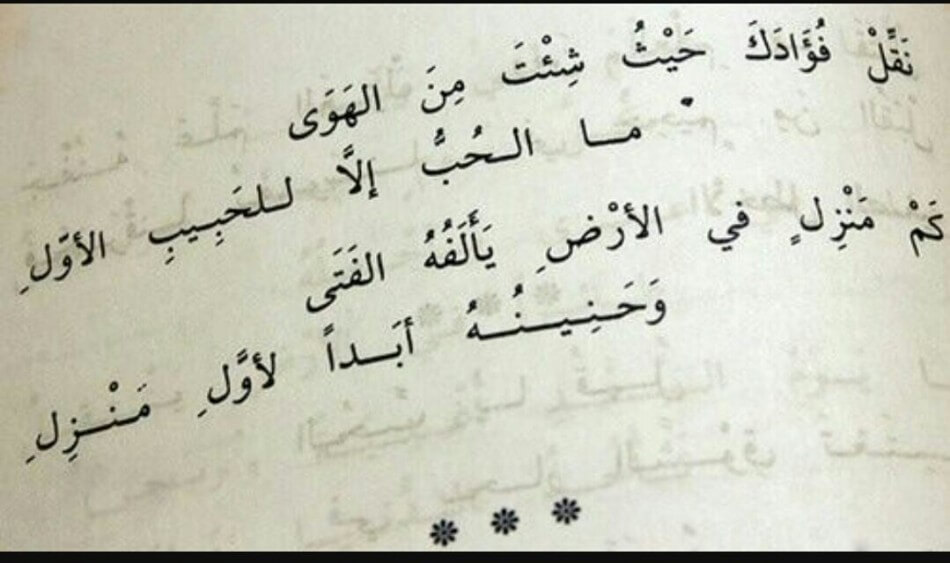 نَقِّلْ فُؤَادَكَ حَيْثُ شِئْتَ مِنَ الهَوَى
مـا الـحُبُّ إلَّا لـلحَبِـيبِ الأوَّلِ
كَمْ مَنْزِلٍ في الأرْضِ يَأْلَفُهُ الفَتَى
وَحَـنِـيـنُـهُ أبَـداً لأوَّلِ مَـنْـزِلِ